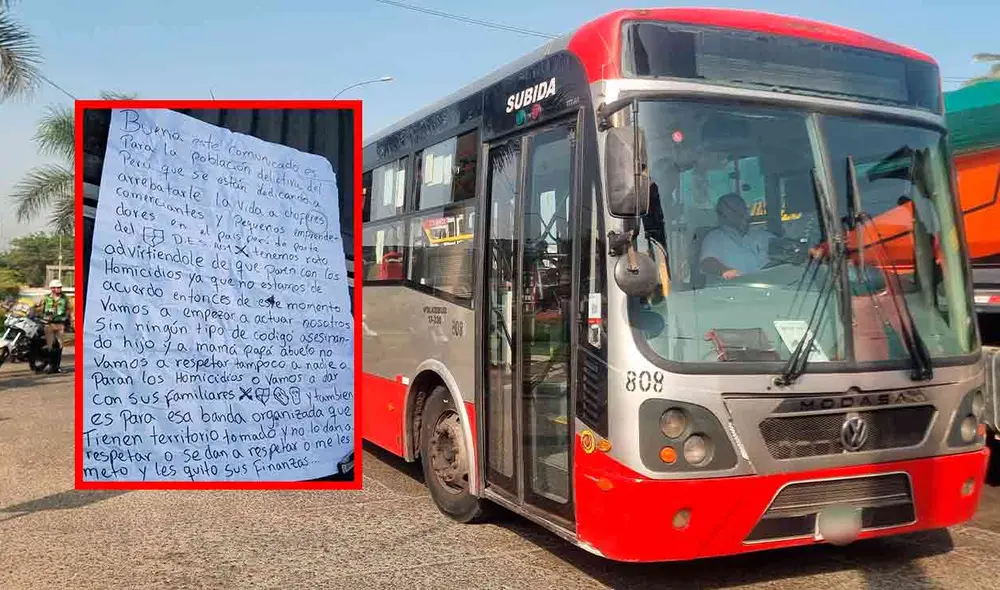 Buena este comunicado es
Para la población delictiva del
Perú que se están dedicando a
arrebatarle la vida a choferes
comerciantes y Pequenos emprende-
dores en el país pues de parte
del D.E. NM X tenemos rato
advirtiendole del que Paren con los
Homicidios ya que no estamos de
acuerdo entonces de este momento
Vamos a empezar a actuar nosotros
Sin ningún tipo de codigo asesinan-
do hijo y a mamá papá abuelo no
Vamos a respetar tampoco a nadie o
Paran los Homicidios o Vamos a dar
con sus familiares X y tambien
es Para esa banda organizada que
Tienen territorio tomado y no lo dan a
respetar o se dan a respetar o me les
meto y les quito sus Finanzas...
SUBIDA
808
808
MODASA